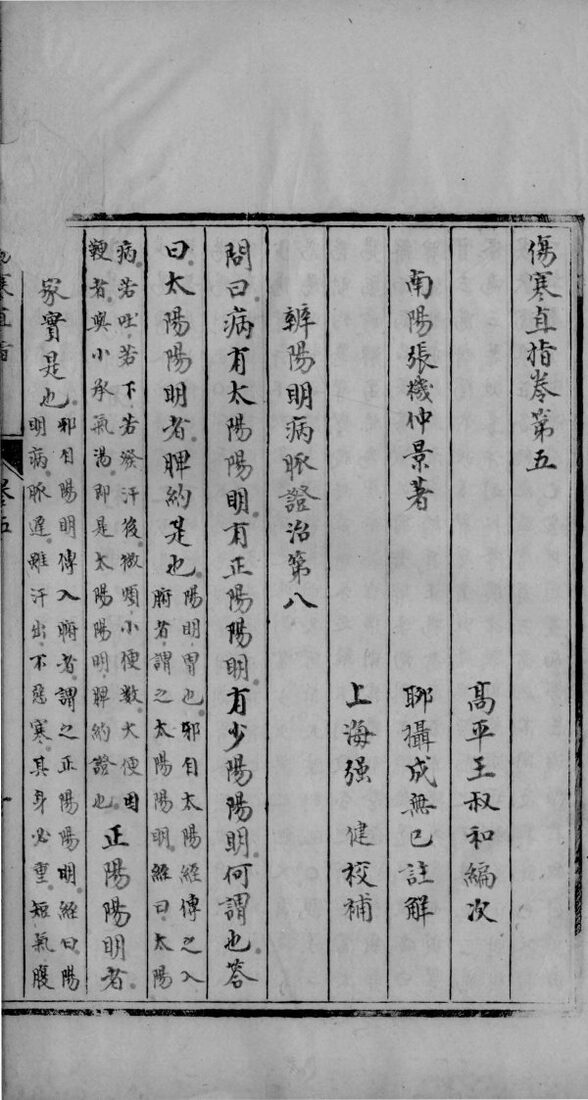 傷寒直指卷第五
高平王叔和編次
南陽張機仲景著
聊攝成無已註解
上海强　健校補
辨陽明病脈證治第八
問曰病有太陽陽明有正陽陽明有少陽陽明何謂也答
曰太陽陽明者脾約是也
陽明胃也邪自太陽經傳之入
腑者謂之太陽陽明經曰太陽
病若吐若下若發汗後微煩小便數大便因
鞕者與小承氣湯即是太陽陽明脾約證也
正陽陽明者
家實是也
邪自陽明傳入腑者謂之正陽陽明經曰陽
明病脈遲雖汗出不惡寒其身必重短氣腹
寒直指
卷五
一